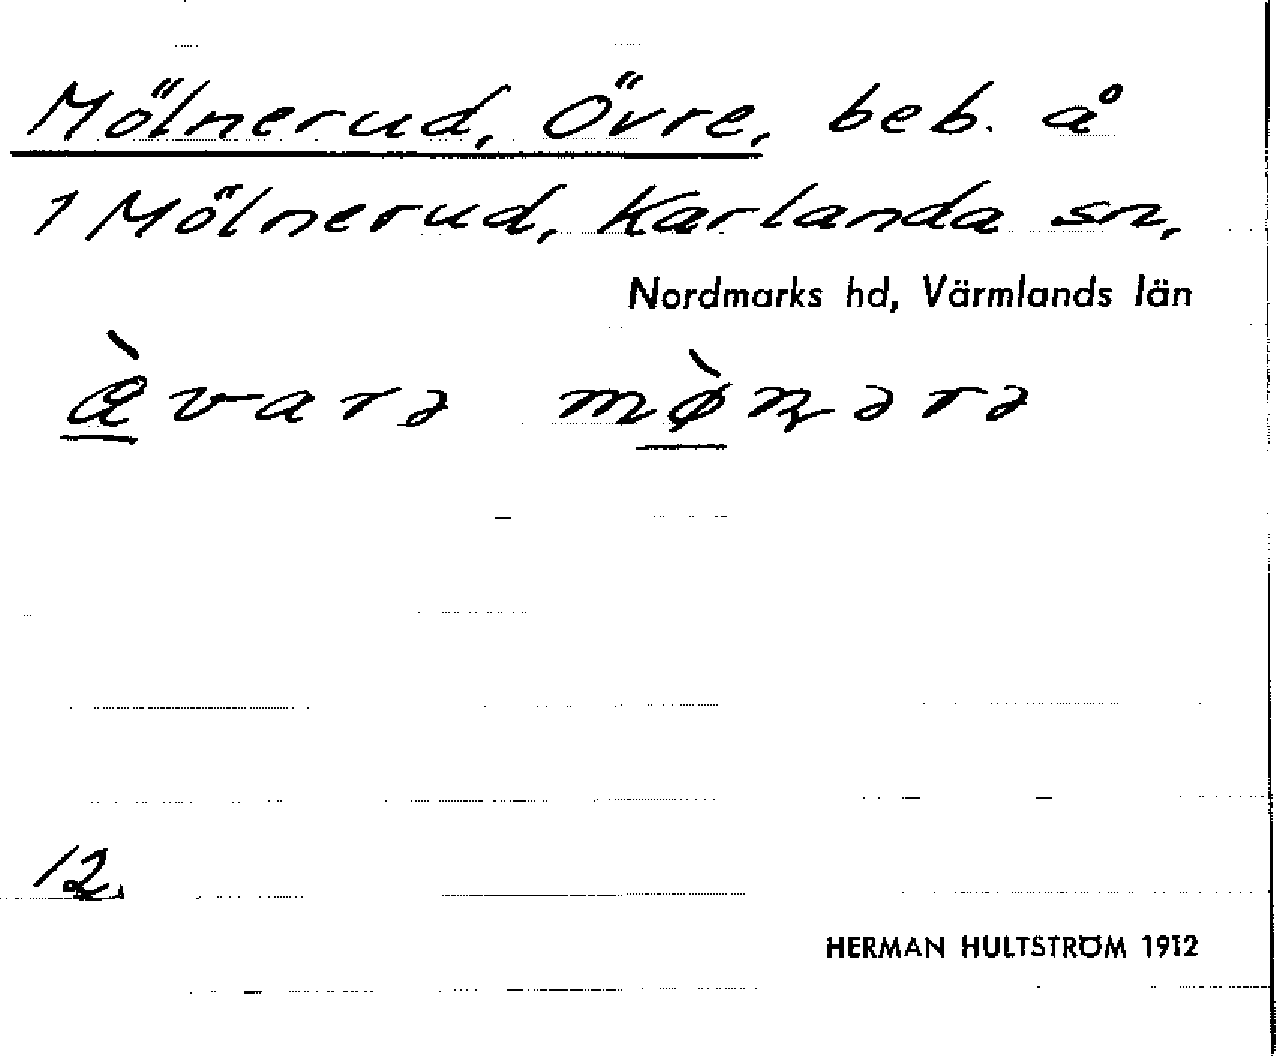 Mölnerud, Övre, beb. å
1 Mölnerud, Karlanda sn,
Nordmarks hd, Värmlands län
12.
HERMAN HULTSTRÖM 1912